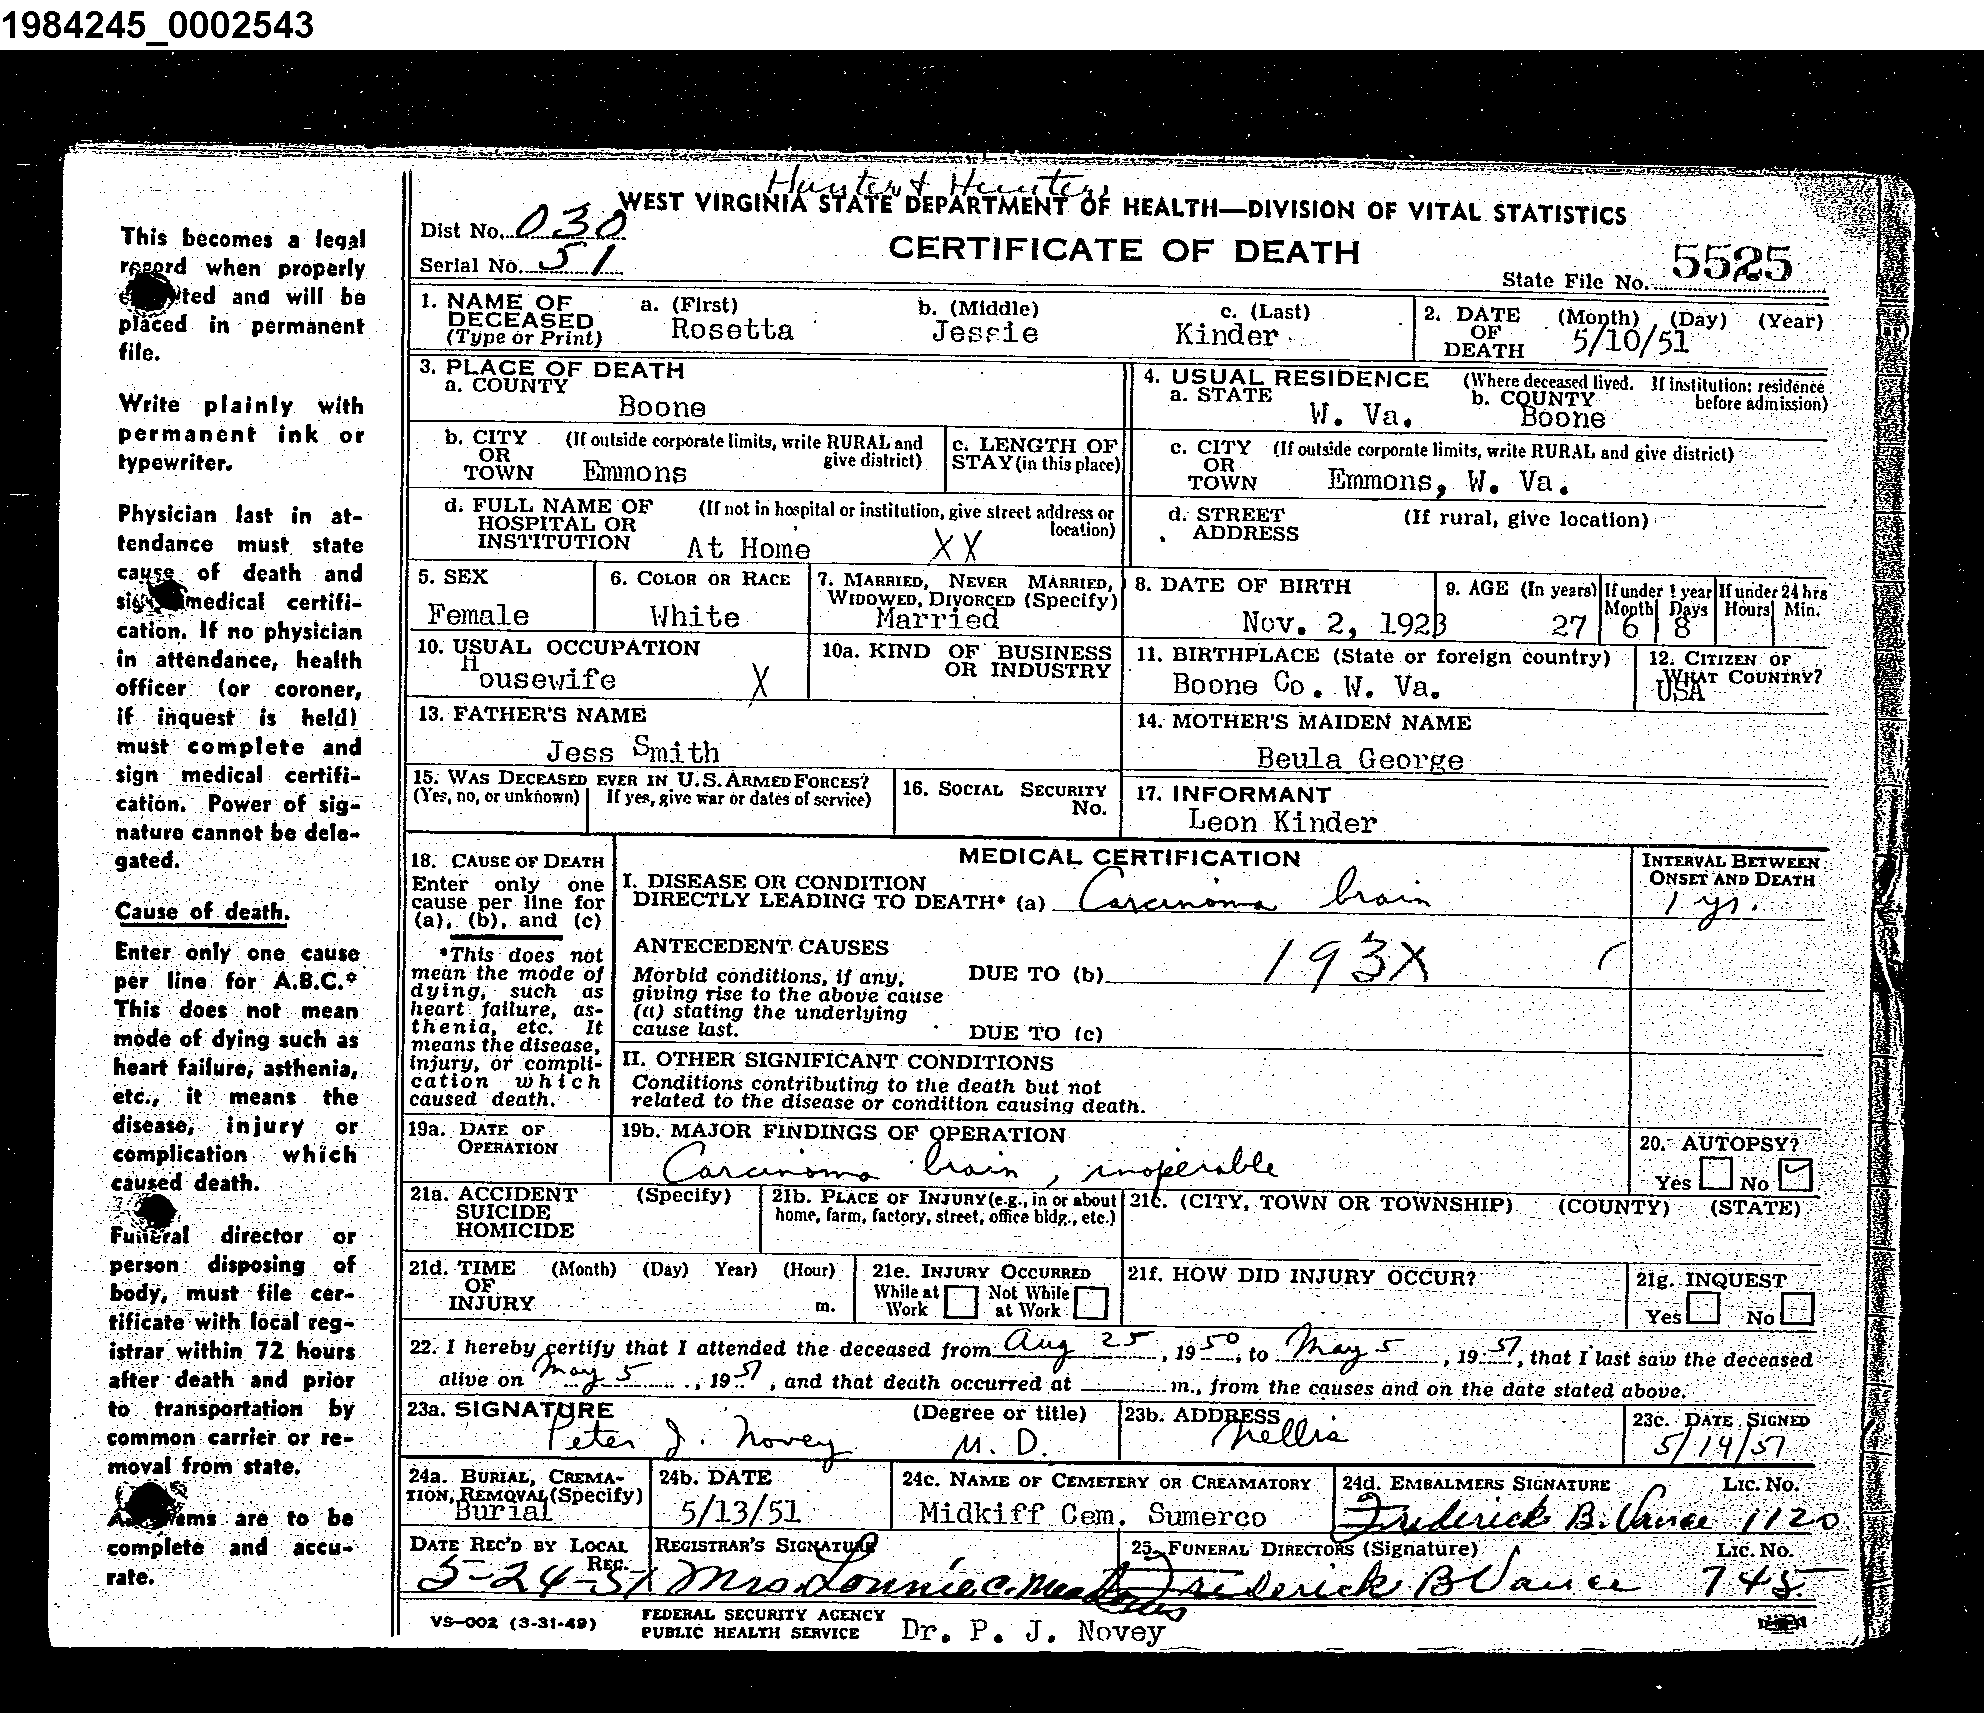 1984245_0002543
Hunter & Hunters
WEST VIRGINIA STATE DEPARTMENT OF HEALTH—DIVISION OF VITAL STATISTICS
Dist No. 030
CERTIFICATE OF DEATH
Serial No. 51
State File No. 5525
This becomes a legal
record when properly
ted and will be
placed in permanent
file.
Write plainly with
permanent ink or
typewriter.
Physician last in at-
tendance must state
cause of death and
sign medical certifi-
cation. If no physician
in attendance, health
officer (or coroner,
if inquest is held)
must complete and
sign medical certifi-
cation. Power of sig-
nature cannot be dele-
gated.
Cause of death.
Enter only one cause
per line for A.B.C.*
This does not mean
mode of dying such as
heart failure, asthenia,
etc., it means the
disease, injury or
complication which
caused death.
Funeral director or
person disposing of
body, must file cer-
tificate with local reg-
istrar within 72 hours
after death and prior
to transportation by
common carrier or re-
moval from state.
are to be
complete and accu-
rate.
1. NAME OF DECEASED (Type or Print) a. (First) b. (Middle) c. (Last)
Rosetta Jessie Kinder
2. DATE OF DEATH (Month) (Day) (Year)
5/10/51
3. PLACE OF DEATH
a. COUNTY
Boone
4. USUAL RESIDENCE (Where deceased lived. If institution: residence before admission)
a. STATE W. Va. b. COUNTY Boone
b. CITY OR TOWN (If outside corporate limits, write RURAL and give district)
Emmons
c. LENGTH OF STAY (in this place)
c. CITY OR TOWN (If outside corporate limits, write RURAL and give district)
Emmons, W. Va.
d. FULL NAME OF HOSPITAL OR INSTITUTION (If not in hospital or institution, give street address or location)
At Home XX
d. STREET ADDRESS (If rural, give location)
5. SEX
Female
6. COLOR OR RACE
White
7. MARRIED, NEVER MARRIED, WIDOWED, DIVORCED (Specify)
Married
8. DATE OF BIRTH
Nov. 2, 1923
9. AGE (In years) If under 1 year Month Days If under 24 hrs Hours Min.
27 6 8
10. USUAL OCCUPATION
Housewife X
10a. KIND OF BUSINESS OR INDUSTRY
11. BIRTHPLACE (State or foreign country)
Boone Co. W. Va.
12. CITIZEN OF WHAT COUNTRY?
USA
13. FATHER'S NAME
Jess Smith
14. MOTHER'S MAIDEN NAME
Beula George
15. WAS DECEASED EVER IN U.S. ARMED FORCES?
(Yes, no, or unknown) If yes, give war or dates of service)
16. SOCIAL SECURITY No.
17. INFORMANT
Leon Kinder
18. CAUSE OF DEATH
Enter only one
cause per line for
(a), (b), and (c)
*This does not
mean the mode of
dying, such as
heart failure, as-
thenia, etc. It
means the disease,
injury, or compli-
cation which
caused death.
MEDICAL CERTIFICATION
INTERVAL BETWEEN ONSET AND DEATH
I. DISEASE OR CONDITION
DIRECTLY LEADING TO DEATH* (a) Carcinoma brain 1 yr.
ANTECEDENT CAUSES
Morbid conditions, if any,
giving rise to the above cause
(a) stating the underlying
cause last.
DUE TO (b) 193X
DUE TO (c)
II. OTHER SIGNIFICANT CONDITIONS
Conditions contributing to the death but not
related to the disease or condition causing death.
19a. DATE OF OPERATION
19b. MAJOR FINDINGS OF OPERATION
Carcinoma brain, inoperable
20. AUTOPSY?
Yes No ✓
21a. ACCIDENT SUICIDE HOMICIDE (Specify)
21b. PLACE OF INJURY (e.g., in or about home, farm, factory, street, office bldg., etc.)
21c. (CITY, TOWN OR TOWNSHIP) (COUNTY) (STATE)
21d. TIME OF INJURY (Month) (Day) Year) (Hour) m.
21e. INJURY OCCURRED
While at Work Not While at Work
21f. HOW DID INJURY OCCUR?
21g. INQUEST
Yes No
22. I hereby certify that I attended the deceased from Aug 25, 1950, to May 5, 1951, that I last saw the deceased
alive on May 5, 1951, and that death occurred at m., from the causes and on the date stated above.
23a. SIGNATURE (Degree or title)
Peter J. Novey M. D.
23b. ADDRESS
Nellis
23c. DATE SIGNED
5/14/51
24a. BURIAL, CREMATION, REMOVAL (Specify)
Burial
24b. DATE
5/13/51
24c. NAME OF CEMETERY OR CREAMATORY
Midkiff Cem. Sumerco
24d. EMBALMERS SIGNATURE LIC. NO.
Frederick B. Vance 1120
DATE REC'D BY LOCAL REG.
5-24-51
REGISTRAR'S SIGNATURE
Mrs. Lonnie C. Meadows
25. FUNERAL DIRECTORS (Signature) LIC. NO.
Frederick B Vance 745
VS-002 (3-31-49)
FEDERAL SECURITY AGENCY
PUBLIC HEALTH SERVICE
Dr. P. J. Novey